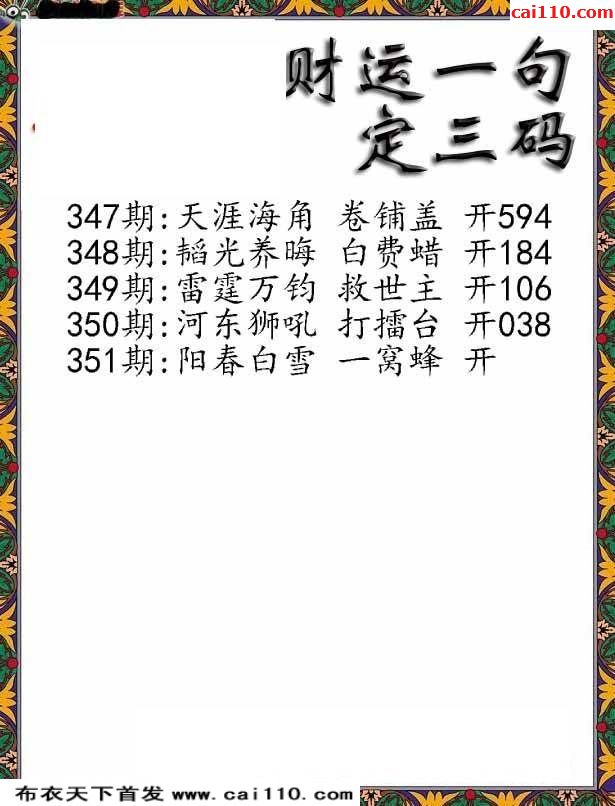 cai110.com
财运一句
定三码
347期:天涯海角 卷铺盖 开594
348期:韬光养晦 白费蜡 开184
349期:雷霆万钧 救世主 开106
350期:河东狮吼 打擂台 开038
351期:阳春白雪 一窝蜂 开
布衣天下首发 www.cai110.com